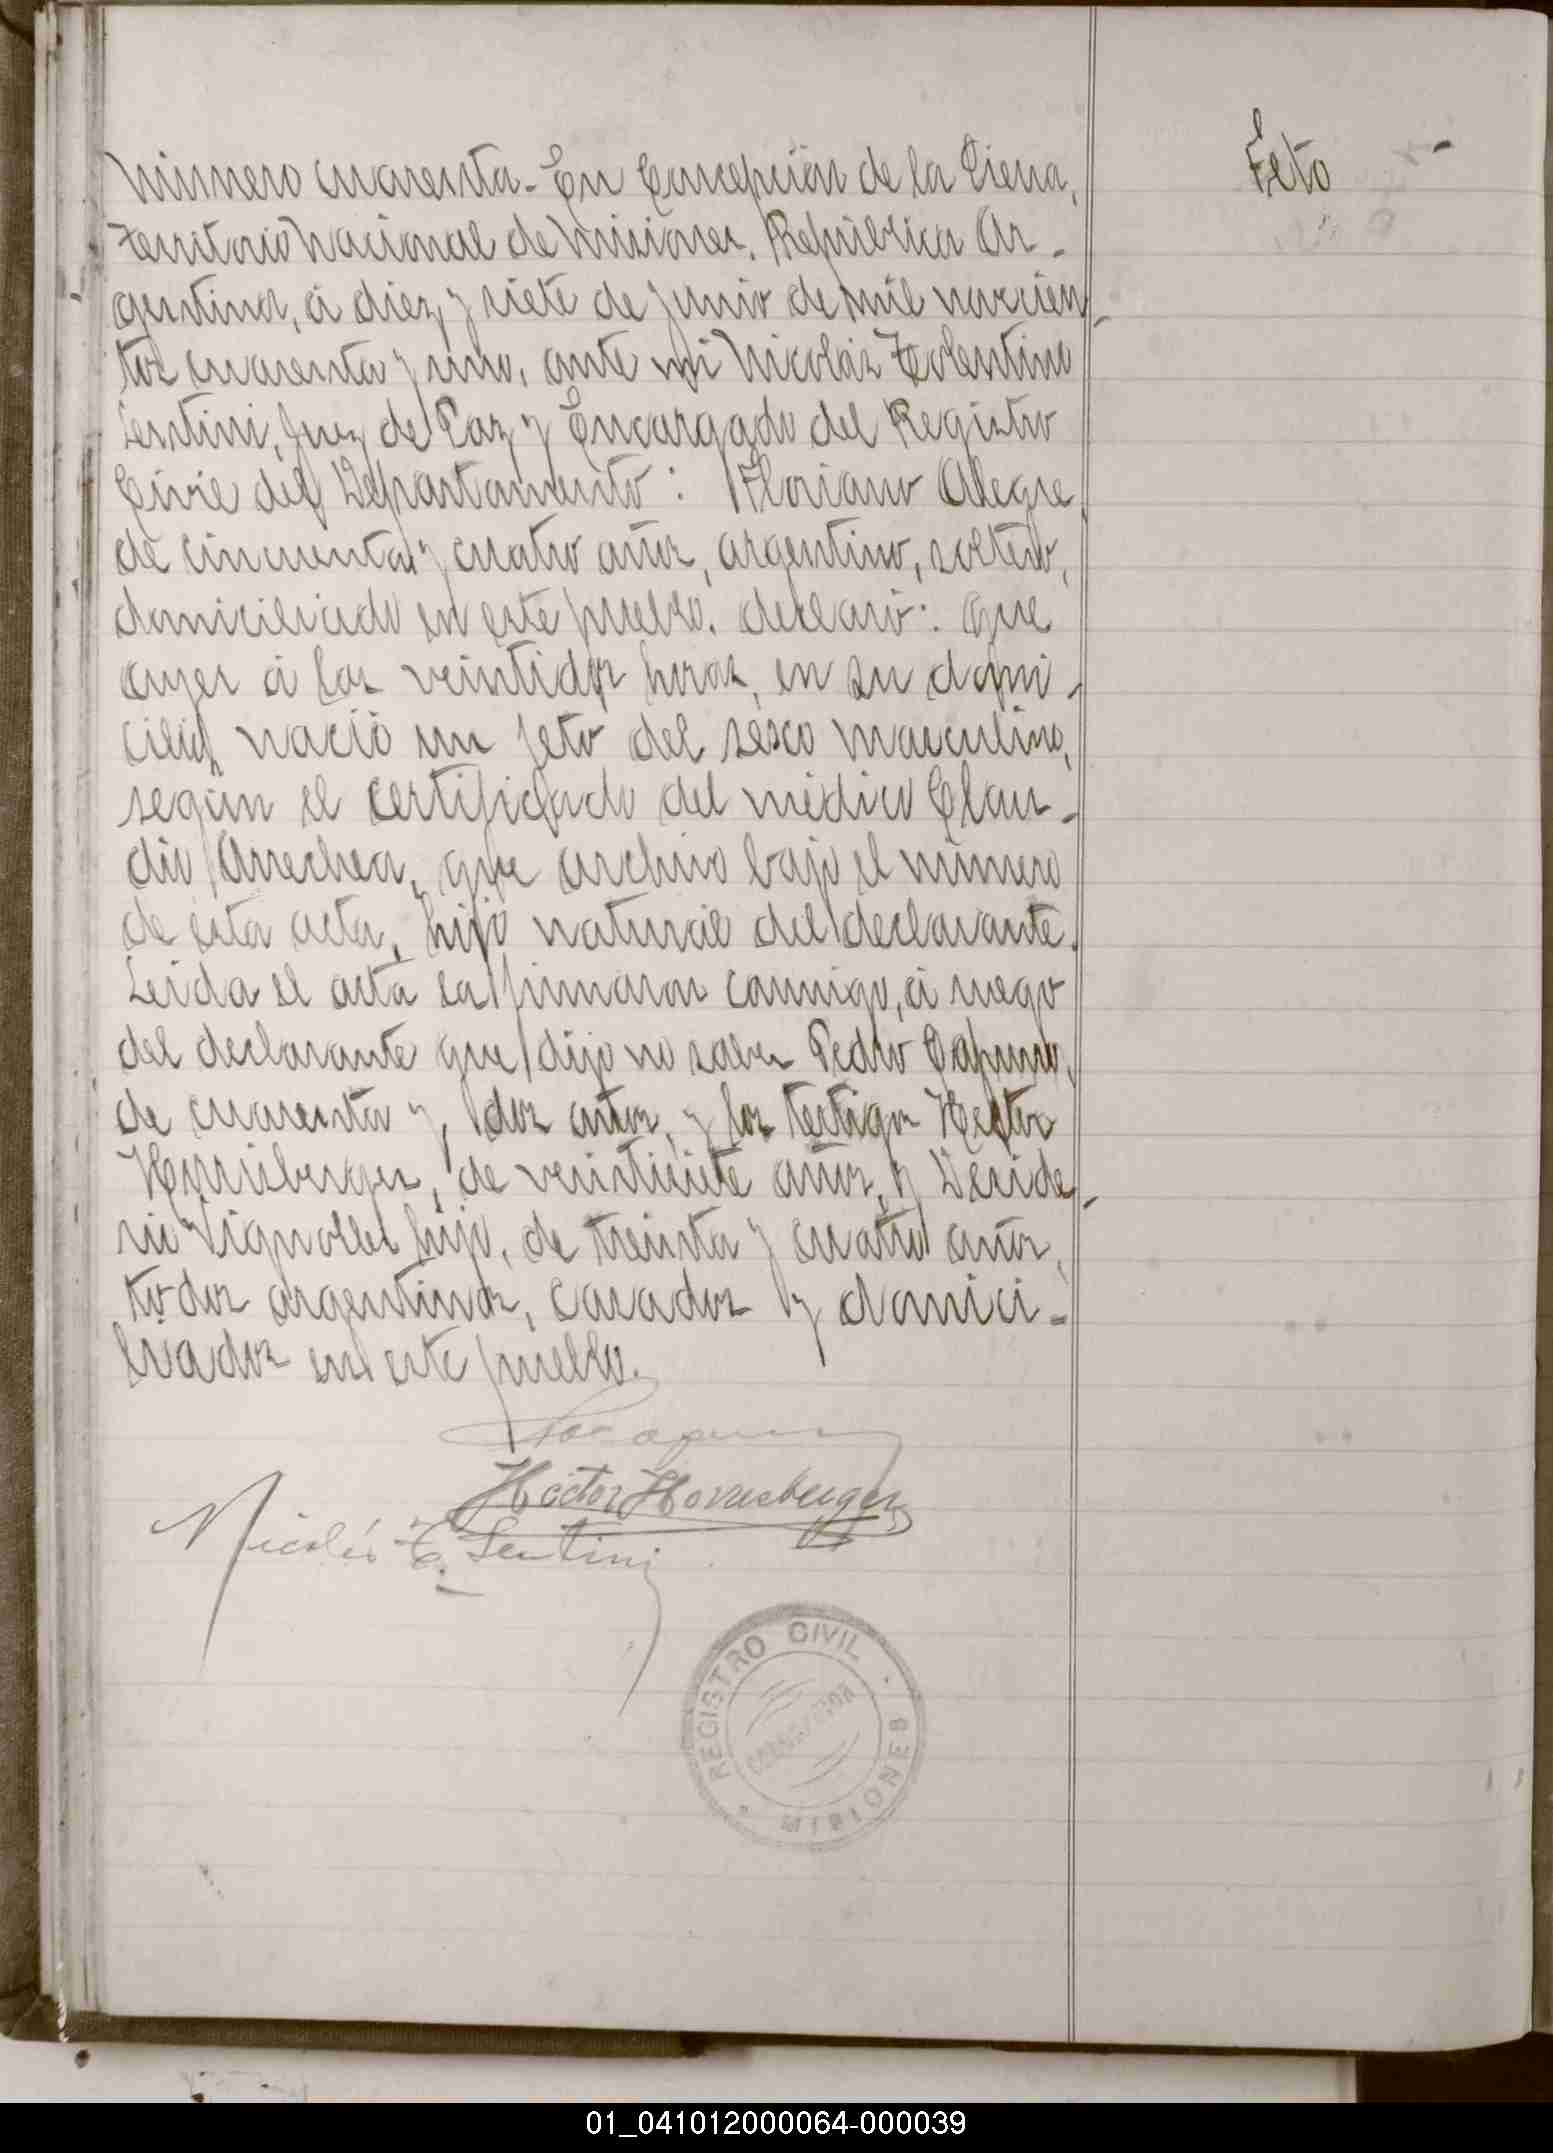 Feto
Número cuarenta.- En Concepción de la Sierra,
Territorio Nacional de Misiones, República Ar-
gentina, á diez y siete de junio de mil novecien-
tos cuarenta y uno, ante mi Nicolás Tolentino
Sentini, Juez de Paz y Encargado del Registro
Civil del Departamento: Floriano Alegre
de cincuenta y cuatro años, argentino, soltero,
domiciliado en este pueblo, declaró: Que
ayer á las veintidos horas, en su domi-
cilio nació un feto del sexo masculino,
según el certificado del médico Clau-
dio Arrechea, que archivo bajo el número
de esta acta, hijo natural del declarante.
Leida el acta la firmaron conmigo, á ruego
del declarante que dijo no saber Pedro
de cuarenta y dos años, y los testigos Hector
de veintisiete años, y Deside-
rio Vignolles hijo, de treinta y cuatro años,
todos argentinos, casados y domici-
liados en este pueblo.
Hector
Nicolás T. Sentini
REGISTRO CIVIL
MISIONES
01_041012000064-000039